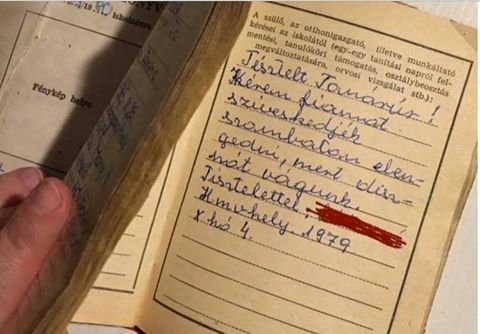 NYV
19 80
iskolaévre
Fénykép helye
A szülő, az otthonigazgató, illetve munkáltató
kérései az iskolától (egy-egy tanítási napról fel-
mentési, tanulóköri támogatás, osztálybeosztás
megváltoztatására, orvosi vizsgálat stb.):
Tisztelt Tanárúr!
Kérem fiamat
sziveskedjék
szombaton elen-
gedni, mert disz-
nót vágunk.
Tisztelettel
Hmvhely 1979
X hó 4.